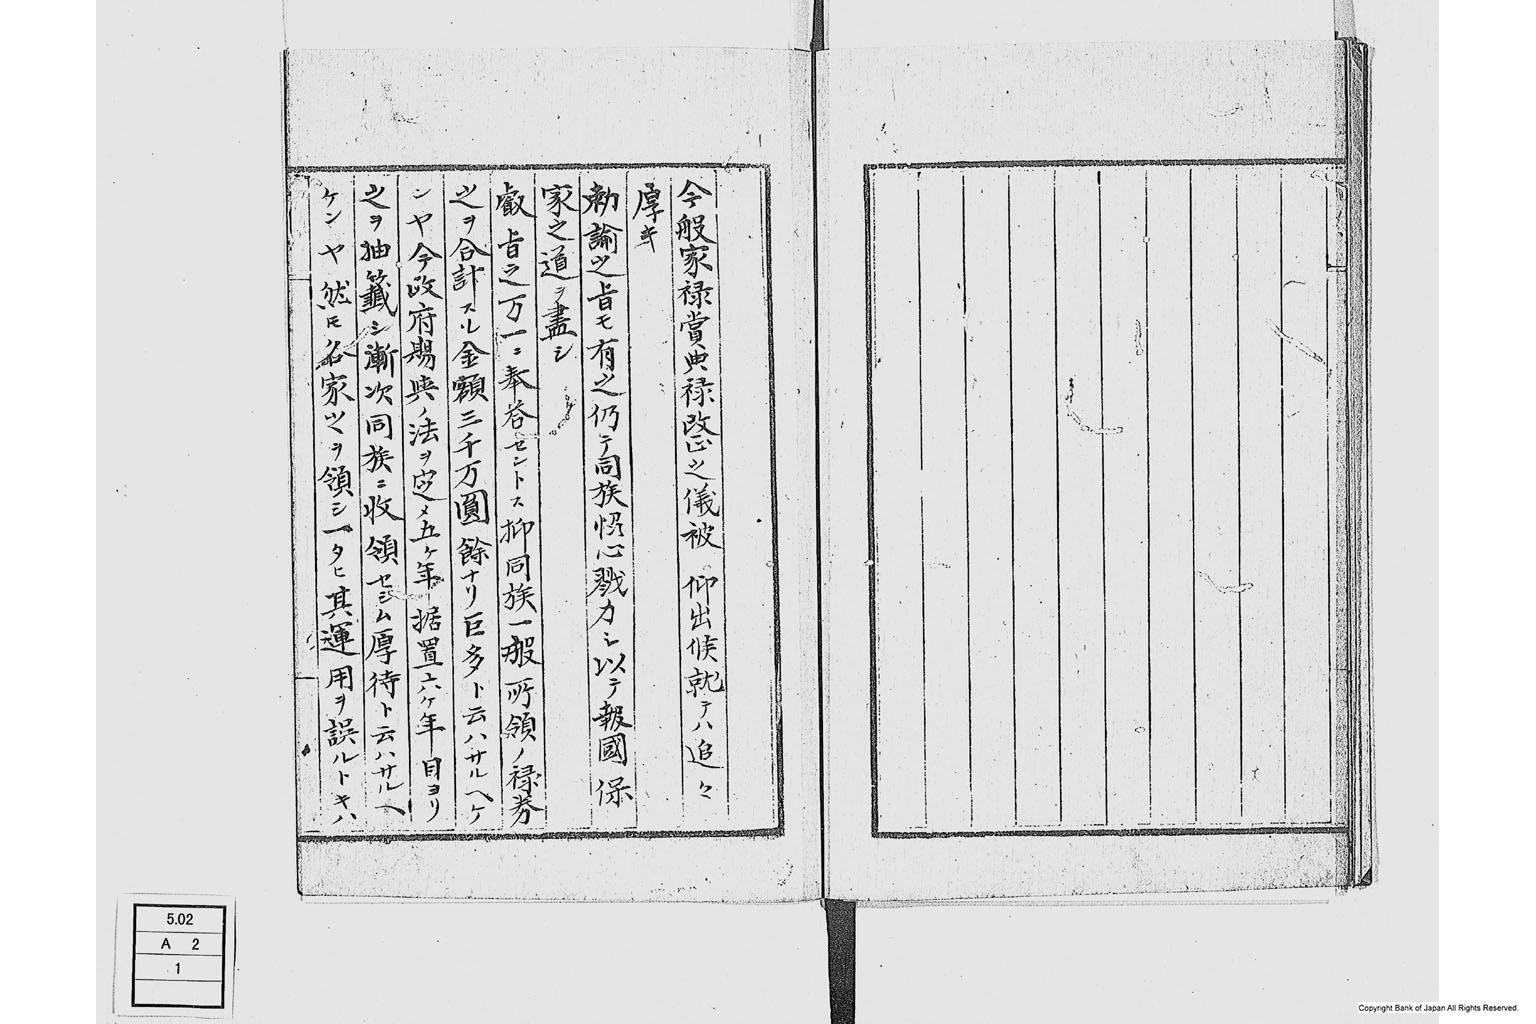 今般家禄賞典禄改正之儀被 仰出候就テハ追々
厚キ
勅諭之旨モ有之仍テ同族恊心戮力シ以テ報國保
家之道ヲ盡シ
叡旨之万一ニ奉荅セントス抑同族一般所領ノ禄券
之ヲ合計スル金額三千万圓餘ナリ巨多ト云ハサルヘケ
ンヤ今政府賜典ノ法ヲ定メ五ケ年据置六ケ年目ヨリ
之ヲ抽籤シ漸次同族ニ收領セシム厚待ト云ハサルヘ
ケンヤ然モ名家之ヲ領シ一タヒ其運用ヲ誤ルトキハ
5.02
A 2
1
Copyright Bank of Japan All Rights Reserved.